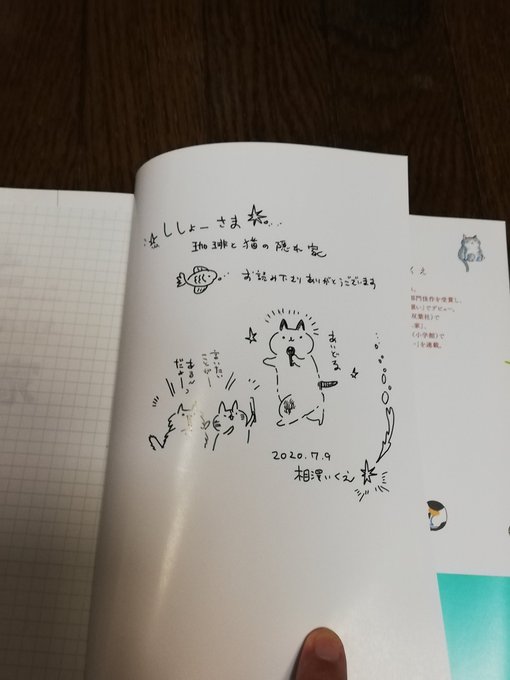 ししょーさま
珈琲と猫の隠れ家
お読み下さりありがとうございます
あいどる
言いたい
ことがー
あるん
だよーっ
2020.7.9
相澤いくえ
くえ
部門佳作を受賞し、
い』でデビュー。
双葉社)で
家』
(小学館)で
』を連載。